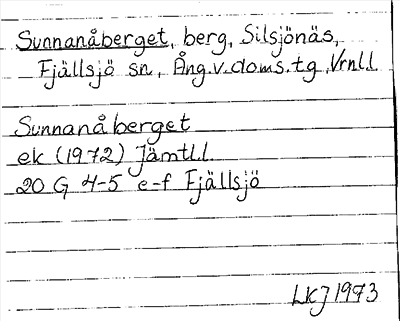 Sunnanåberget, berg, Silsjönäs,
Fjällsjö sn, Ång.v.doms.tg, Vrnl.l
Sunnanåberget
ek (1972) Jämtl.l
20 G 4-5 e-f Fjällsjö
LKJ 1973